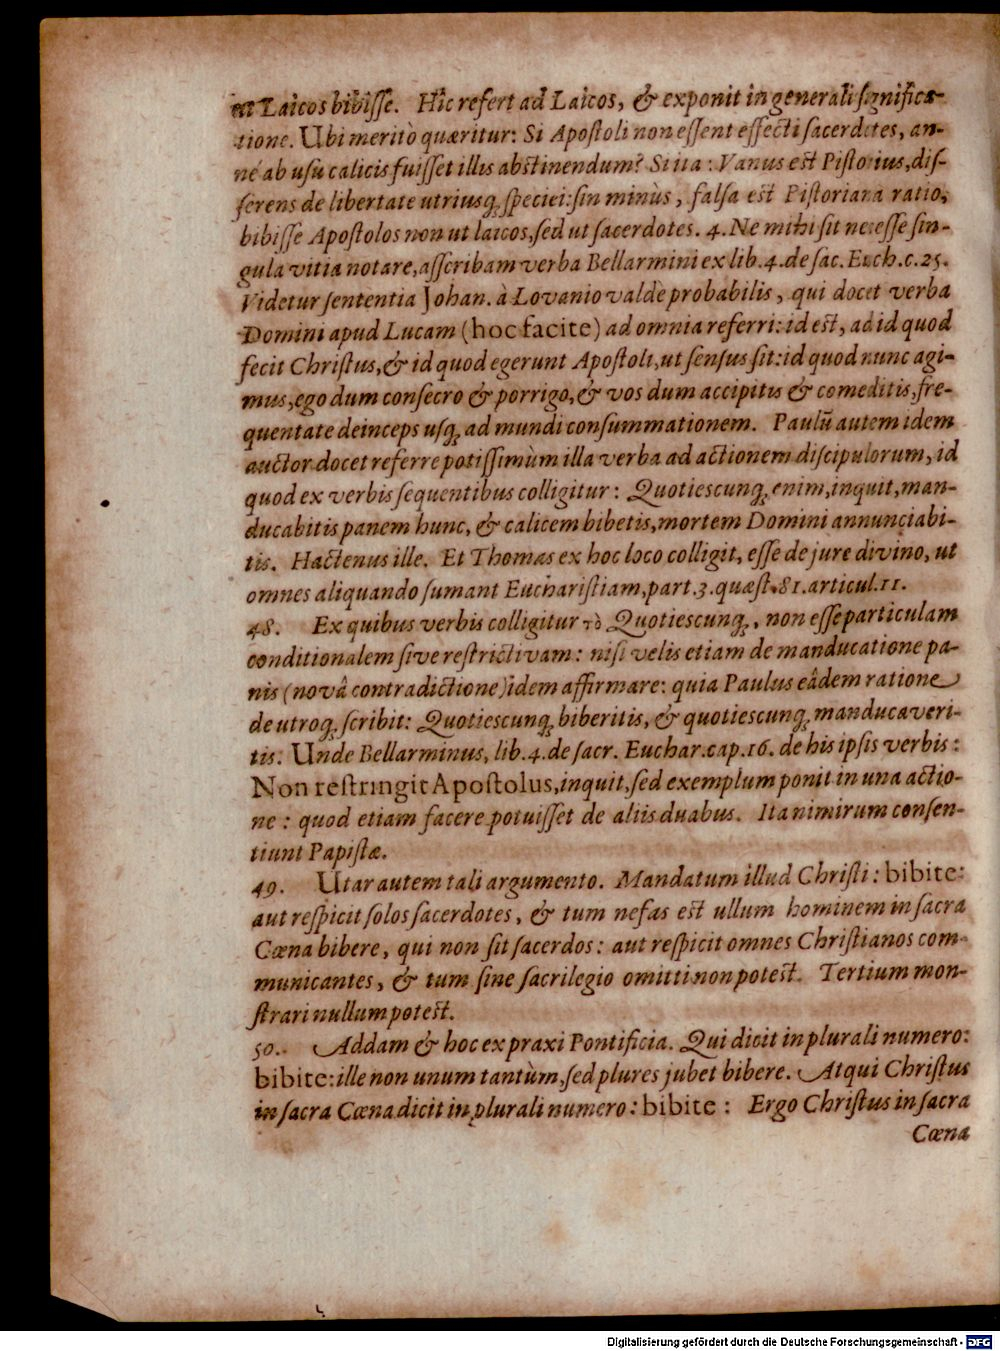 ut Laicos bibisſe. Hîc refert ad Laicos, & exponit in generali significa-
tione. Ubi meritò quæritur: Si Apoſtoli non eſſent effecti ſacerdotes, an-
ne ab uſu calicis fuiſſet illis abſtinendum? Si ita: Vanus eſt Piſtorius, diſ-
ſerens de libertate utriusq; ſpeciei: ſin minùs, falſa eſt Piſtoriana ratio,
bibiſſe Apoſtolos non ut laicos, ſed ut ſacerdotes. 4. Ne mihi ſit neceſſe ſin-
gula vitia notare, aſſcribam verba Bellarmini ex lib. 4. de ſac. Euch. c. 25.
Videtur ſententia Johan. à Lovanio valdè probabilis, qui docet verba
Domini apud Lucam (hoc facite) ad omnia referri: id eſt, ad id quod
fecit Chriſtus, & id quod egerunt Apoſtoli, ut ſenſus ſit: id quod nunc agi-
mus, ego dum conſecro & porrigo, & vos dum accipitis & comeditis, fre-
quentate deinceps uſq; ad mundi conſummationem. Paulũ autem idem
auctor docet referre potiſſimùm illa verba ad actionem diſcipulorum, id
quod ex verbis ſequentibus colligitur: Quotieſcunq; enim, inquit, man-
ducabitis panem hunc, & calicem bibetis, mortem Domini annunciabi-
tis. Hactenus ille. Et Thomas ex hoc loco colligit, eſſe de jure divino, ut
omnes aliquando ſumant Euchariſtiam, part. 3. quæſt. 81. articul. 11.
48. Ex quibus verbis colligitur τὸ Quotieſcunq;, non eſſe particulam
conditionalem ſive reſtrictivam: niſi velis etiam de manducatione pa-
nis (novâ contradictione) idem affirmare: quia Paulus eâdem ratione
de utroq; ſcribit: Quotieſcunq; biberitis, & quotieſcunq; manducaveri-
tis: Unde Bellarminus, lib. 4. de ſacr. Euchar. cap. 16. de his ipſis verbis:
Non reſtringit Apoſtolus, inquit, ſed exemplum ponit in una actio-
ne: quod etiam facere potuiſſet de aliis duabus. Ita nimirum conſen-
tiunt Papiſtæ.
49. Utar autem tali argumento. Mandatum illud Chriſti: bibite:
aut reſpicit ſolos ſacerdotes, & tum nefas eſt ullum hominem in ſacra
Cœna bibere, qui non ſit ſacerdos: aut reſpicit omnes Chriſtianos com-
municantes, & tum ſine ſacrilegio omitti non poteſt. Tertium mon-
ſtrari nullum poteſt.
50. Addam & hoc ex praxi Pontificia. Qui dicit in plurali numero:
bibite: ille non unum tantùm, ſed plures jubet bibere. Atqui Chriſtus
in ſacra Cœna dicit in plurali numero: bibite: Ergo Chriſtus in ſacra
Cœna
Digitalisierung gefördert durch die Deutsche Forschungsgemeinschaft - DFG